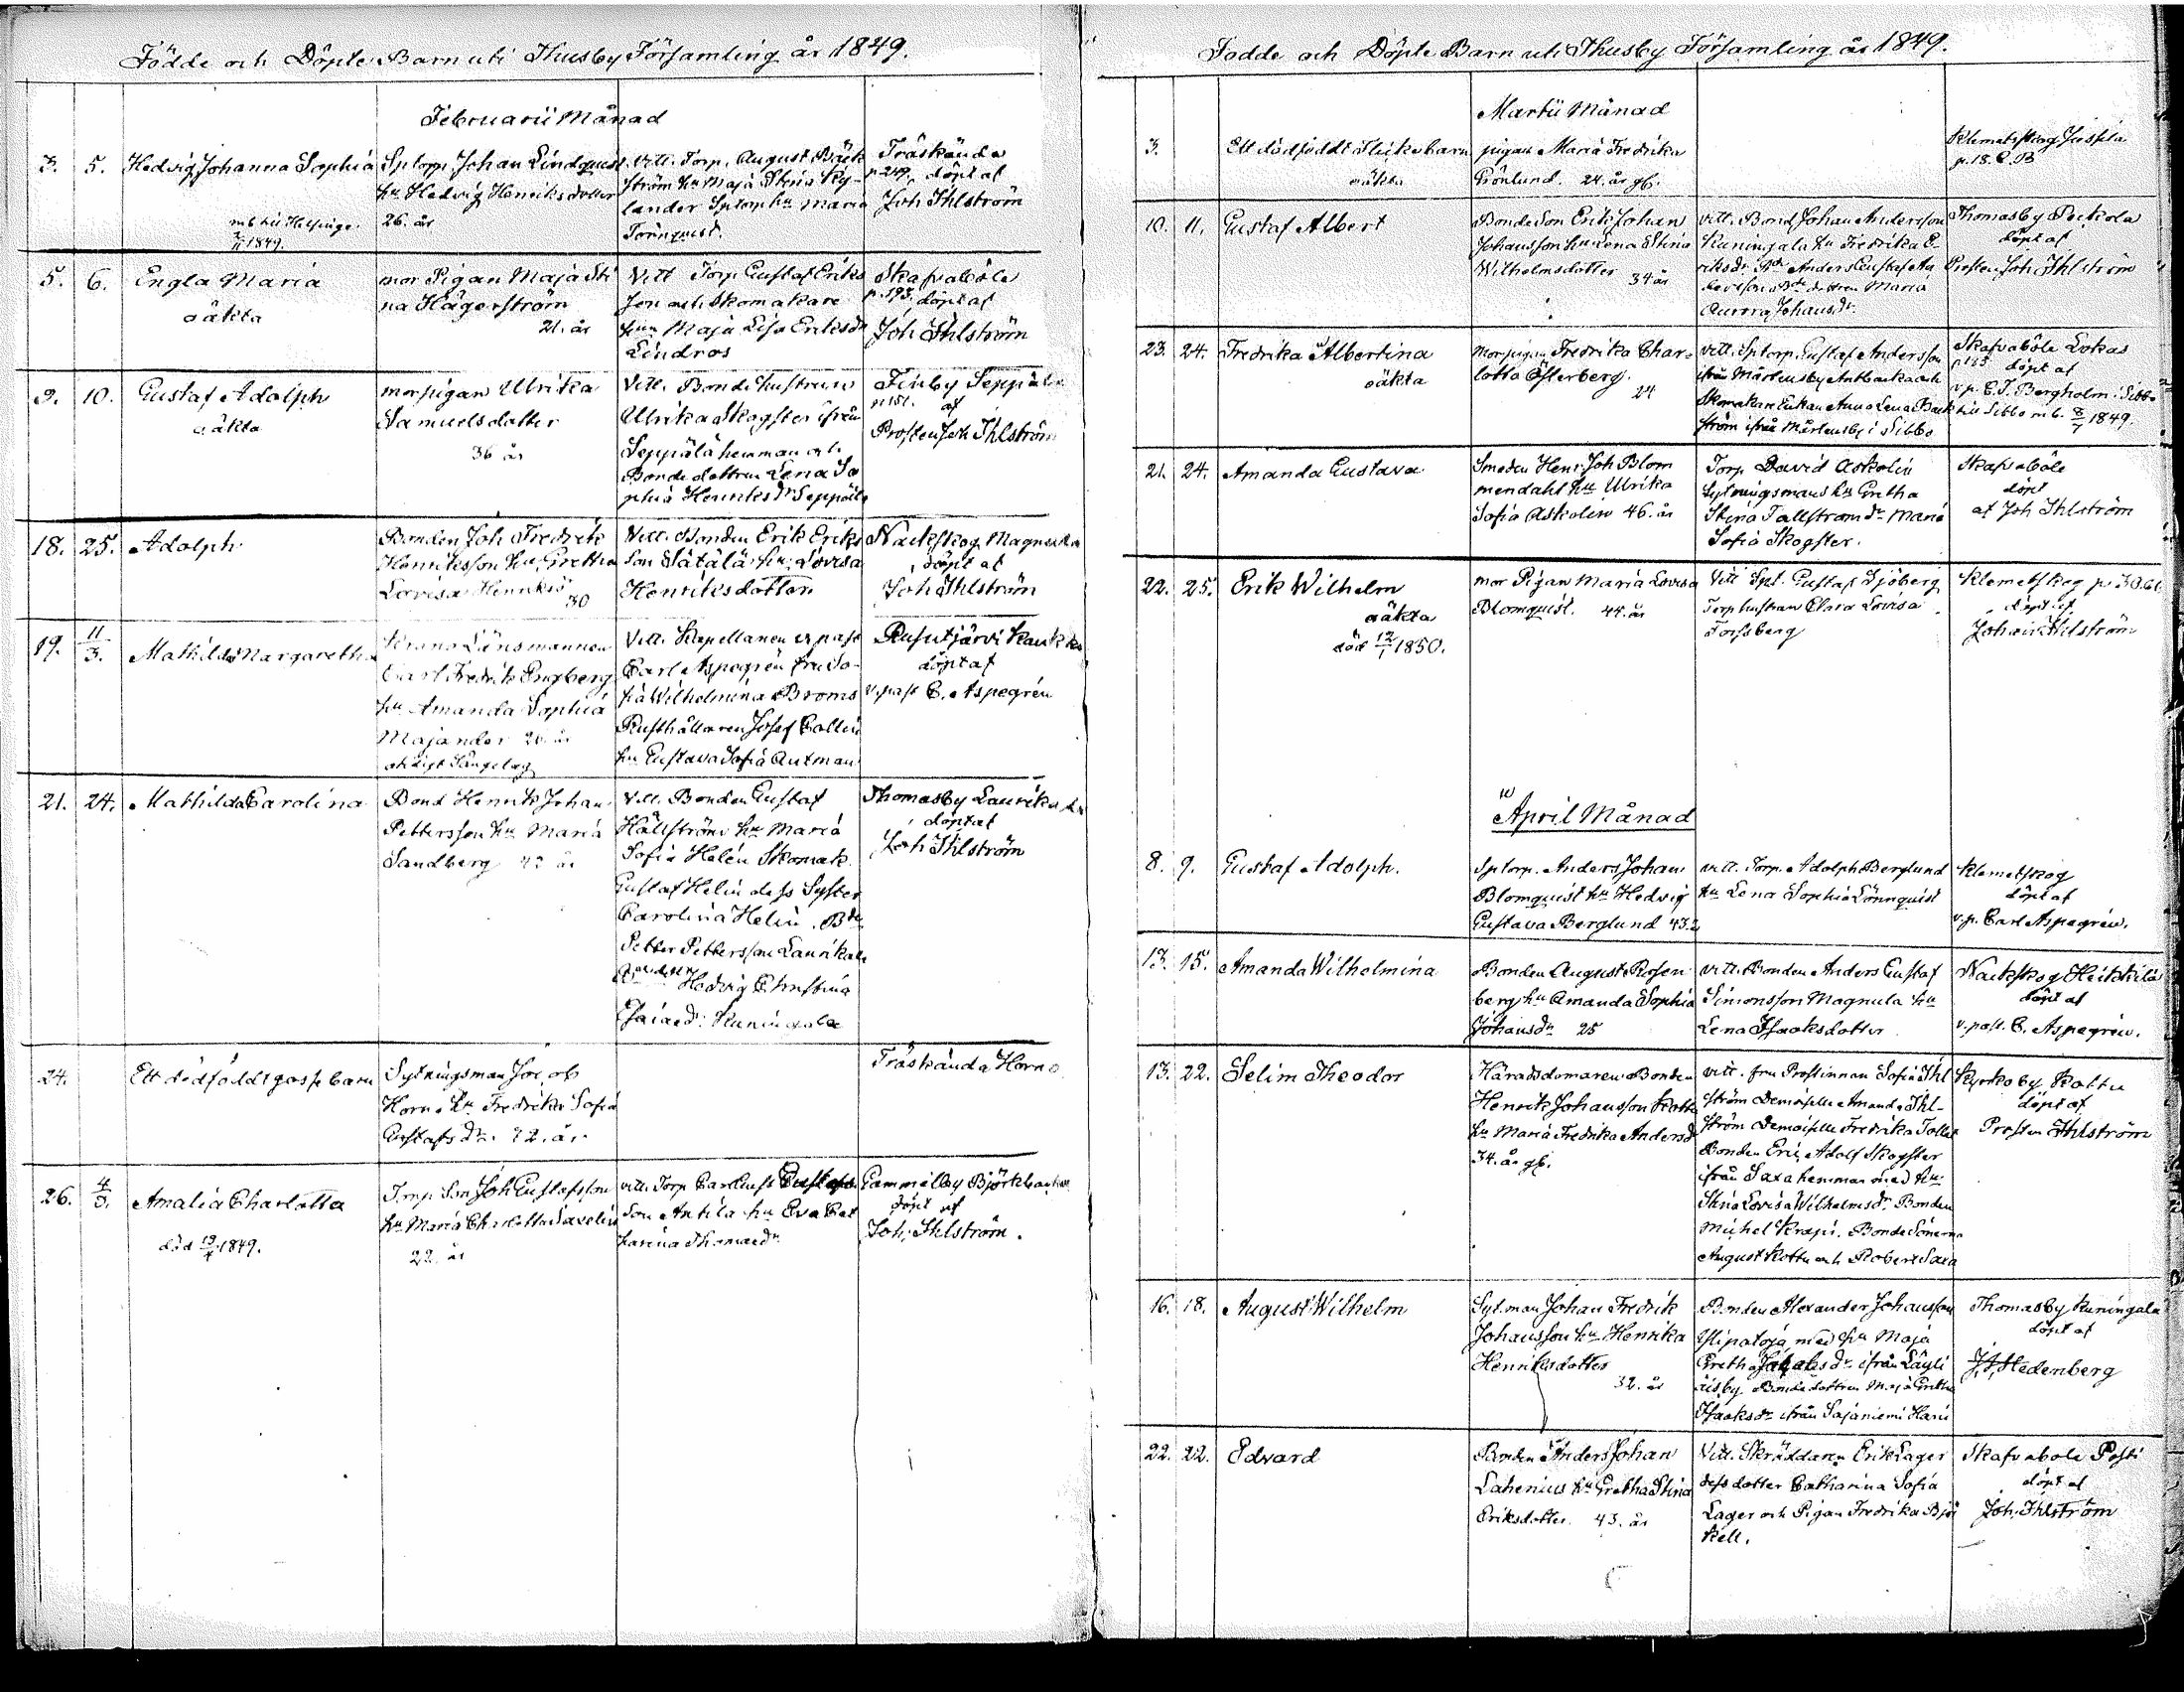 Födde och Döpte Barn uti Thusby Församling år 1849.
Februarii Månad
3. 5. Hedvig Johanna Sophia
mb till Helsinge
1849.
Sptorp Johan Lindquist
hu Hedvig Henriksdotter
26. år
Vitt. Torp. August Bäck
ström hu Maja Stina Ry-
lander Sptorp hu Maria
Törnqvist.
Träskända
p 249. döpt af
Joh Ihlström
5. 6. Engla Maria
oäkta
mor Pigan Maja Sti
na Hägerström
21. år
Vitt Torp Gustaf Eriks
son och Skomakare
hun Maja Lisa Eriksdr
Lindros
Skafvaböle
p. 193. döpt af
Joh Ihlström
9. 10. Gustaf Adolph
oäkta
mor pigan Ulrika
Samuelsdotter
36 år
Vitt. Bonde hustrun
Ulrika Skogster ifrån
Seppälä hemman och
Bondedottren Lena So
phia Henriksdr Seppälä
Finby Seppälä
p 151. af
Prosten Joh Ihlström
18. 25. Adolph
Bonden Joh Fredrik
Henriksson hu Gretha
Lovisa Henriksdr
30
Vitt. Bonden Erik Eriks
son Sätälä hu Lovisa
Henriksdotter
Nackskog Magnula
döpt af
Joh Ihlström
19. 11/3. Mathilda Margaretha
Krono Länsmannen
Carl Fredrik Engberg
hu Amanda Sophia
Majander 26. år
Vitt. Kapellanen v past
Carl Aspegrén fru So-
fia Wilhelmina Broms
Rusthållaren Josef Collin
hu Gustava Sofia Autman
Rusutjärvi
döpt af
v. past C. Aspegrén
21. 24. Mathilda Carolina
Bond Henrik Johan
Pettersson hu Maria
Sandberg 42 år
Vitt. Bonden Gustaf
Hällström hu Maria
Sofia Helén Skomak.
Gustaf Helin dess Syster
Carolina Helin. Bdn
Petter Pettersson Laurikala
Hedvig Christina
Esaiaedr: Kuningala
Thomasby Laurikala
döpt af
Joh Ihlström
24. Ett dödfödt gosse barn
Sytningsman Jacob
Horn hu Fredrika Sofia
Gustafsdr. 42. år
Träskända Horn
26. 4/3. Amalia Charlotta
död 19/4 1849.
Torp Son Joh Gustafsson
hu Maria Charlotta Savelin
22. år
vitt. Torp Carl Gust Gustafs
son Antila hu Eva Cat
harina Thomaedr
Gammelby Björkbacka
döpt af
Joh. Ihlström.
Födde och Döpte Barn uti Thusby Församling år 1849.
Martii Månad
3. Ett dödföddt Flicke barn
oäkta
pigan Maria Fredrika
Grönlund. 24. år gl.
Klemetskog Jussila
p. 18. C. B
10. 11. Gustaf Albert
Bonde Son Erik Johan
Johansson hu Lena Stina
Wilhelmsdotter 34 år
vitt. Bond Johan Andersson
Kuningala hu Fredrika E-
riksdr. Anders Gustaf An
dersson dottren Maria
Aurora Johansdr.
Thomasby Peckola
döpt af
Prosten Joh Ihlström
23. 24. Fredrika Albertina
oäkta
Mor pigan Fredrika Char-
lotta Österberg.
24
vitt. Sptorp. Gustaf Andersson
ifrån Mårtensby Antbacka och
Skomakare Enkan Anna Lena Bäck
ström ifrån Mårtensby i Sibbo
Skafvaböle Lokas
döpt af
v. p. E. J. Bergholm i Sibbo
till Sibbo m b. 8/7 1849.
21. 24. Amanda Gustava
Smeden Henr. Joh Blom
mendahl hu Ulrika
Sofia Askolin 46. år
Torp David Askolin
Sytningsmans hu Gretha
Stina Tallstrom dr Maria
Sofia Skogster.
Skafvaböle
döpt
af Joh Ihlström
22. 25. Erik Wilhelm
oäkta
död 12/1 1850.
mor Pigan Maria Lovisa
Blomquist. 44. år
Vitt Spt. Gustaf Sjöberg
Torp hustrun Clara Lovisa
Forssberg
Klemetskog p
döpt af
Johan Ihlström
April Månad
8. 9. Gustaf Adolph.
Sptorp. Anders Johan
Blomquist hu Hedvig
Gustava Berglund 43.
vitt. Torp. Adolph Berglund
hu Lena Sophia Lönnquist
Klemetskog
döpt af
v. p. Carl Aspegrén.
13. 15. Amanda Wilhelmina
Bonden August Rosen
berg hu Amanda Sophia
Johansdr 25
vitt. Bonden Anders Gustaf
Simonsson Magnula hu
Lena Isaaksdotter
Nackskog Heikkilä
döpt af
v. past. C. Aspegrén.
13. 22. Selim Theodor
Häradsdomaren Bonden
Henrik Johansson Kottu
hu Maria Fredrika Andersdr
34. år gl.
vitt. fru Prostinnan Sofia Ihl
ström Demoiselle Amanda Ihl-
ström Demoiselle Fredrika Tollet
Bonden Eric Adolf Skogster
ifrån Saxa hemman med hu
Stina Lovisa Wilhelmsdr. Bonden
Michel Krapi. Bonde Sönerna
August Kottu och Robert Saxa
Kyrkoby Kottu
döpt af
Prosten Ihlström
16. 18. August Wilhelm
Syt. man Johan Fredrik
Johansson hu Henrika
Henriksdotter
32. år
Bonden Alexander Johansson
Ylipatoja med hu Maja
Gretha Jakobsdr ifrån
by Bondedottren Maja Gretha
Isaaksdr ifrån Sajaniemi
Thomasby Kuningala
döpt af
Stedenberg
22. 22. Edvard
Bonden Anders Johan
Lahenius hu Gretha Stina
Eriksdotter. 43. år
Vitt. Skräddaren Erik Lager
dess dotter Catharina Sofia
Lager och Pigan Fredrika Bjö
kell.
Skafvaböle Posti
döpt af
Joh. Ihlström